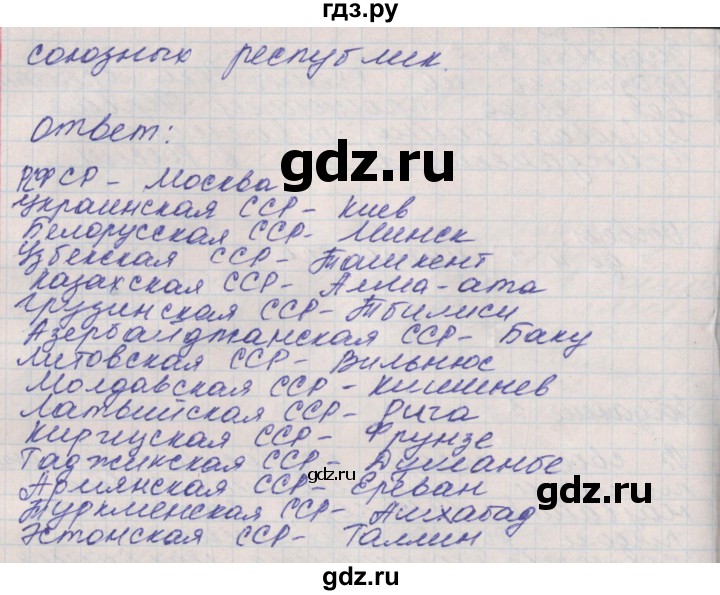 гдз.ру
союзных республик.
ответ:
РФСР - Москва
Украинская ССР - Киев
gdz.ru
Белорусская ССР - Минск
Узбекская ССР - Ташкент
Казахская ССР - Алма-ата
Грузинская ССР - Тбилиси
Азербайджанская ССР - Баку
Литовская ССР - Вильнюс
Молдавская ССР - Кишинев
Латвийская ССР - Рига
Киргизская ССР - Фрунзе
Таджикская ССР - Душанбе
gdz.ru
Армянская ССР - Ереван
gdz.ru
Туркменская ССР - Ашхабад
Эстонская ССР - Таллин
gdz.ru